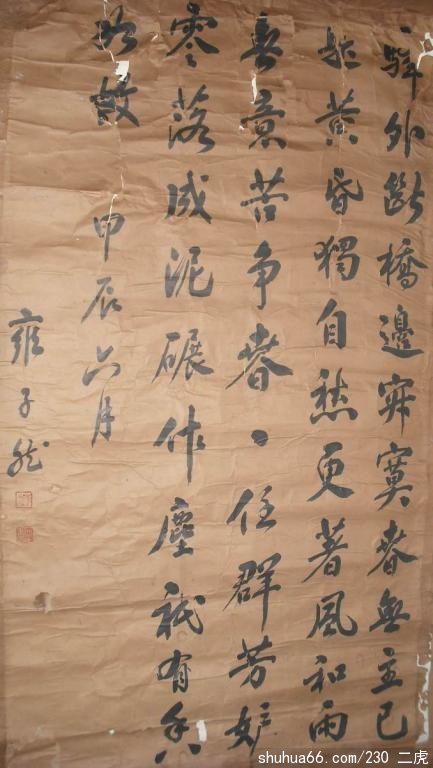 驛外斷橋邊寂寞春無主已
是黄昏獨自愁更著風和雨
無意苦争春一任群芳妒
零落成泥碾作塵祇有香
如故 甲辰六月
雍子
shuhua66.com/230 二虎